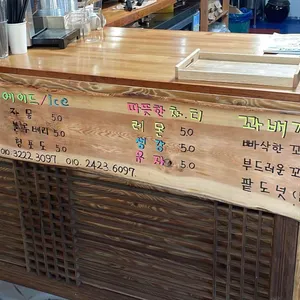 에이드/Ice
자몽 5.0
블루베리 5.0
청포도 5.0
010 3222 3097. 010. 2423 6097.
따뜻한 차, 티
레몬 5.0
생강 5.0
유자 5.0
꽈배기
빠삭한 꽈
부드러운 꼬
팥도넛